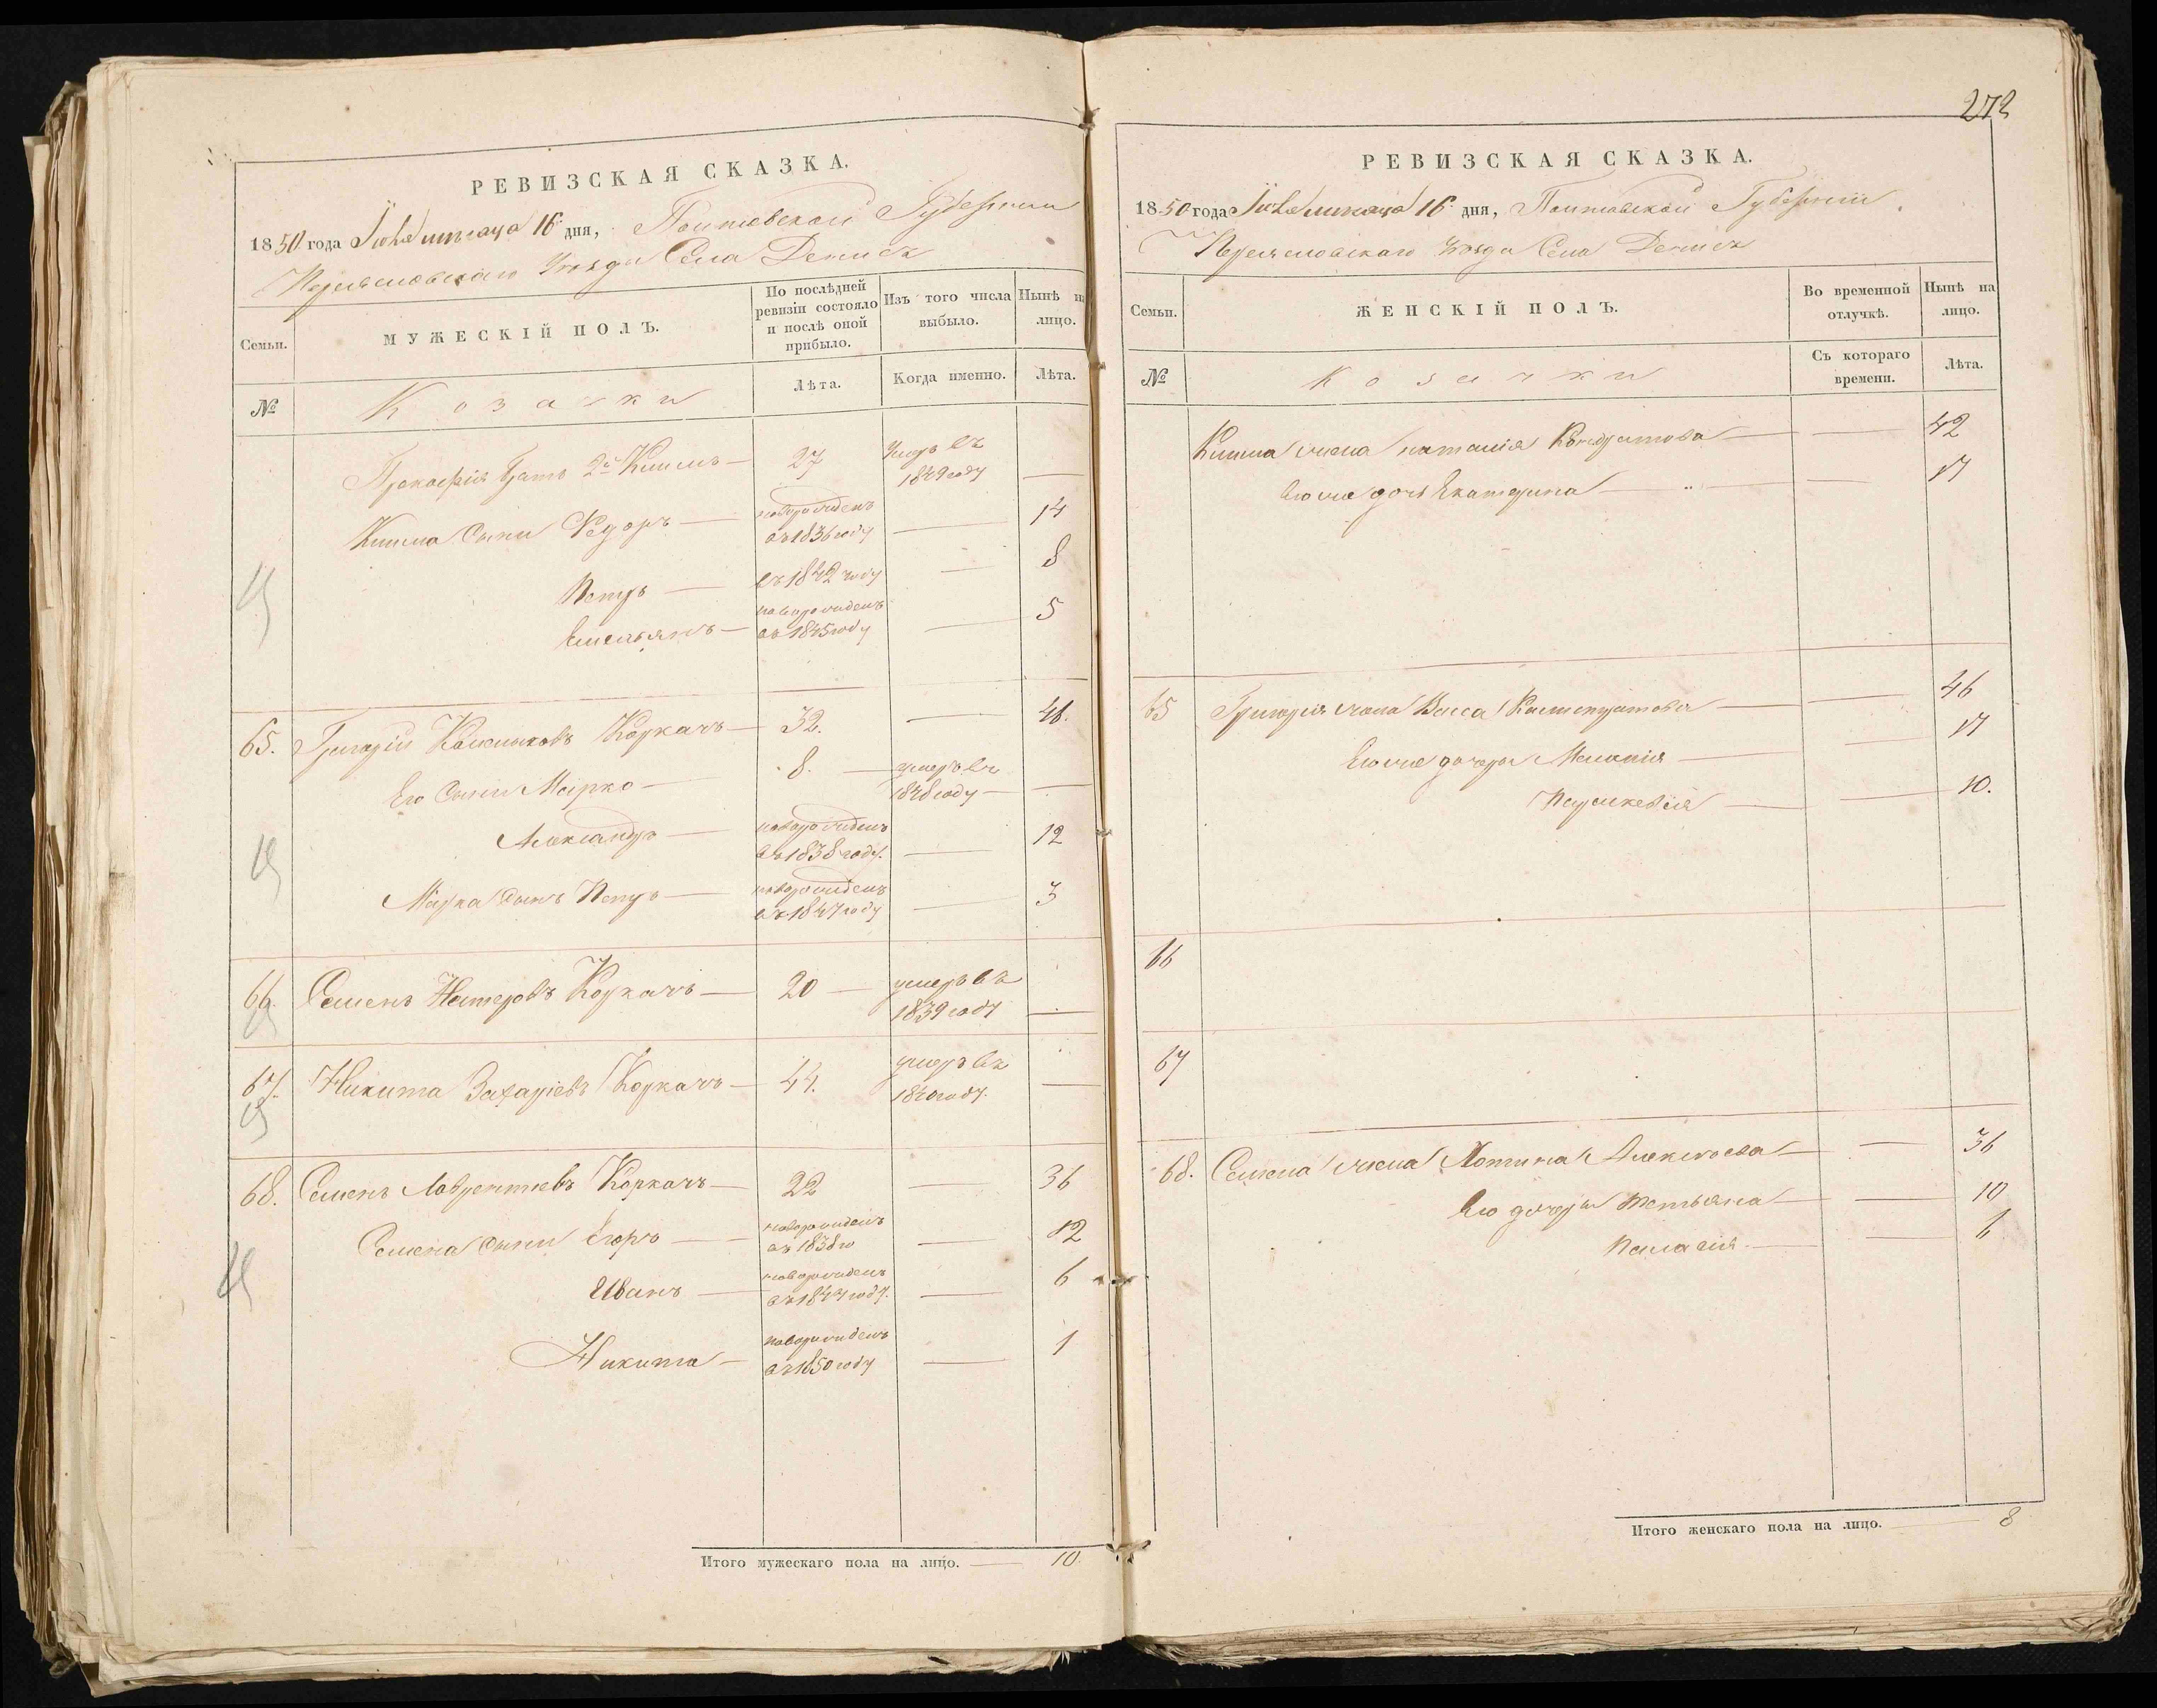 РЕВИЗСКАЯ СКАЗКА.
1850 года Июля месяца 16 дня, Полтавской Губернии
Переяславскаго Уезда Села Денисъ
Семьи.
МУЖЕСКІЙ ПОЛЪ.
По послѣдней ревизіи состояло и послѣ оной прибыло.
Изъ того числа выбыло.
Нынѣ на лицо.
№
Козаки
Лѣта.
Когда именно.
Лѣта.
Прокофія братъ 2й Климъ — 27 умеръ въ 1849 году —
Клима сыны Федоръ — новорожденъ въ 1836 году — 14
Петръ — въ 1842 году — 8
Емельянъ — новорожденъ въ 1845 году — 5
65. Григорій Коркачъ — 32. — 48.
Его сыны Марко — 8. — умеръ въ 1848 году —
Александръ — новорожденъ въ 1838 году. — 12
Марка сынъ Петръ — новорожденъ въ 1847 году — 3
66. Семенъ Нестеровъ Коркачъ — 20 — умеръ въ 1839 году —
67. Никита Захаріевъ Коркачъ — 44. умеръ въ 1840 году. —
68. Семенъ Лаврентіевъ Коркачъ — 22 — 36
Семена сыны Егоръ — новорожденъ въ 1838 го — 12
Иванъ — новорожденъ въ 1844 году. — 6
Никита — новорожденъ въ 1850 году — 1
Итого мужескаго пола на лицо. — 10.
272
РЕВИЗСКАЯ СКАЗКА.
1850 года Июля месяца 16 дня, Полтавской Губерніи
Переяславскаго Уезда Села Денисъ
Семьи.
ЖЕНСКІЙ ПОЛЪ.
Во временной отлучкѣ.
Нынѣ на лицо.
№
Козачки
Съ котораго времени.
Лѣта.
Клима жена Наталія Кондратова — — 42
Его же дочь Екатерина — — 17
65 Григорія жена Васса — — 46
Его же дочери Меланія — — 17
Параскевія — — 10.
66
67
68. Семена жена Алексѣева — — 36
Его дочери Татьяна — — 10
Пелагія — — 6
Итого женскаго пола на лицо. — 8